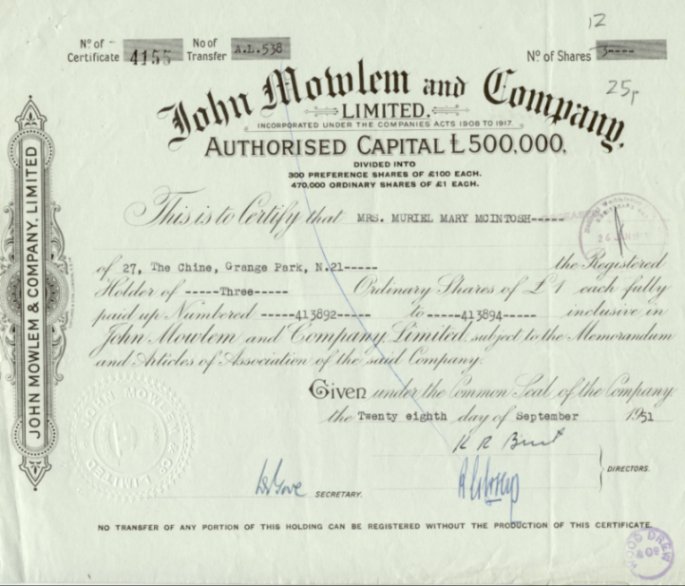 12
Nº of Certificate 4155 No of Transfer A.L.538 Nº of Shares 3----
25p
John Mowlem and Company,
LIMITED.
INCORPORATED UNDER THE COMPANIES ACTS 1908 TO 1917.
AUTHORISED CAPITAL £500,000.
DIVIDED INTO
300 PREFERENCE SHARES OF £100 EACH.
470,000 ORDINARY SHARES OF £1 EACH.
This is to Certify that MRS. MURIEL MARY MCINTOSH-----
of 27, The Chine, Grange Park, N.21----- the Registered
Holder of -----Three----- Ordinary Shares of £1 each fully
paid up Numbered -----413892----- to -----413894----- inclusive in
John Mowlem and Company, Limited, subject to the Memorandum
and Articles of Association of the said Company.
Given under the Common Seal of the Company
the Twenty eighth day of September 1951
K R Burt
DIRECTORS.
SECRETARY.
NO TRANSFER OF ANY PORTION OF THIS HOLDING CAN BE REGISTERED WITHOUT THE PRODUCTION OF THIS CERTIFICATE.
JOHN MOWLEM & COMPANY, LIMITED
JOHN MOWLEM & CO LIMITED